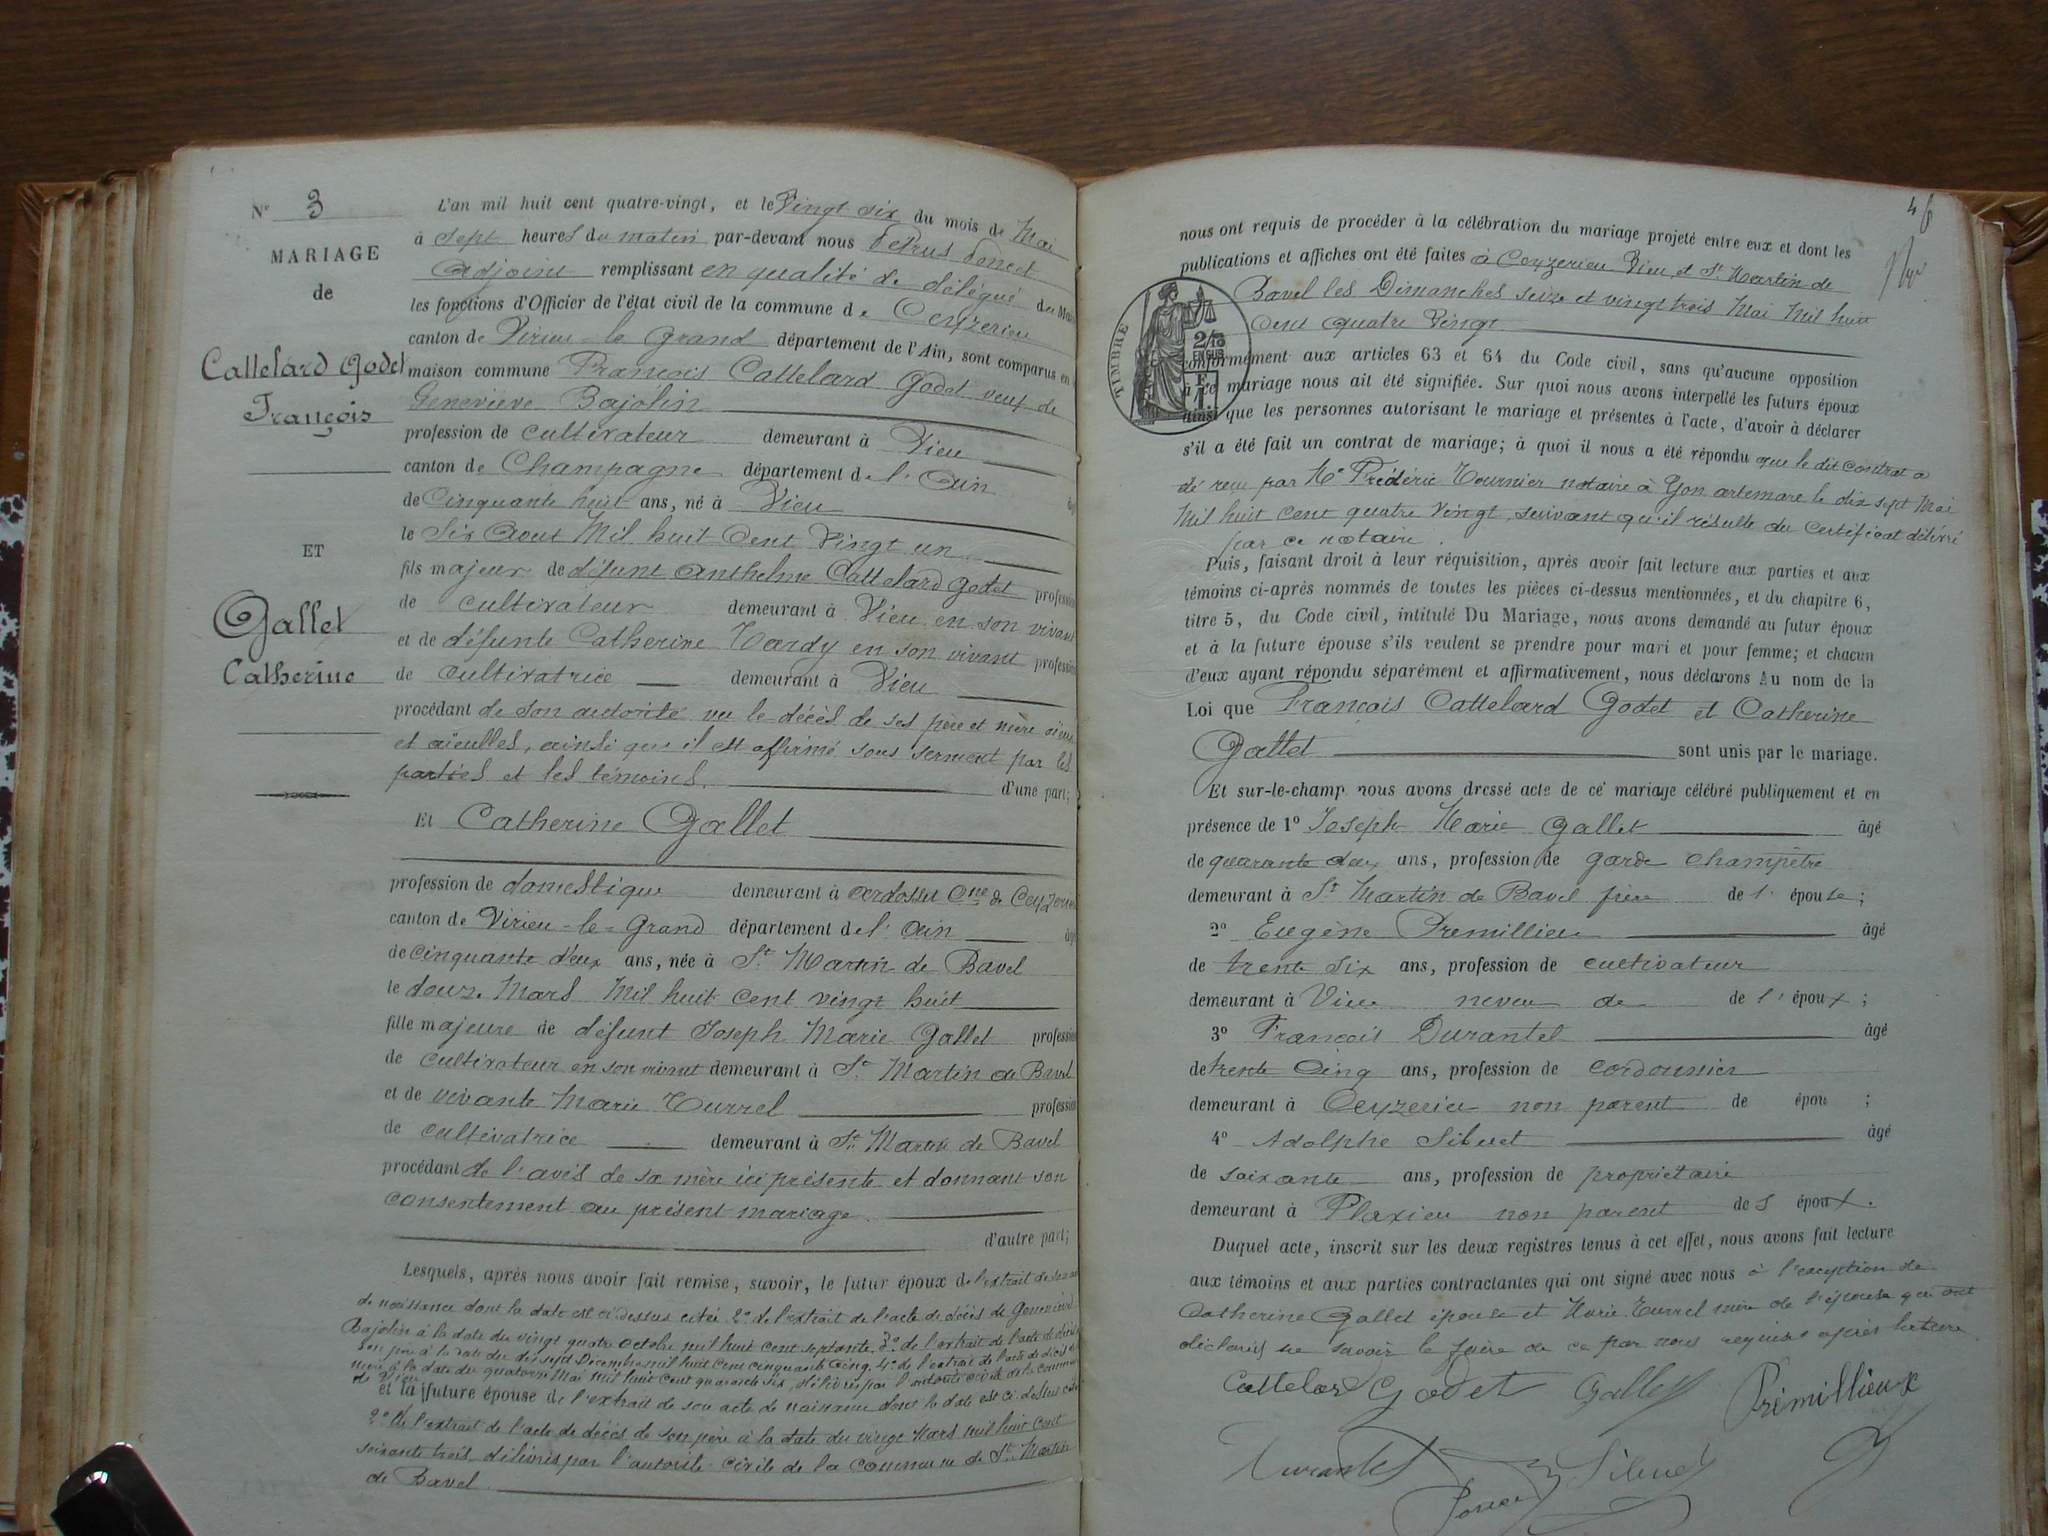 N° 3
MARIAGE
de
Cattelard Godet
François
ET
Gallet
Catherine
L'an mil huit cent quatre-vingt, et le Vingt six du mois de Mai
à Sept heures du matin par-devant nous Petrus
Adjoint remplissant en qualité de délégué du Maire
les fonctions d'Officier de l'état civil de la commune de Ceyzerieu
canton de Virieu-le-Grand département de l'Ain, sont comparus en
maison commune François Cattelard Godet veuf de
Geneviève Bajolin
profession de cultivateur demeurant à Vieu
canton de Champagne département de l'Ain
de Cinquante huit ans, né à Vieu
le Six Aout Mil huit Cent Vingt un
fils majeur de défunt Anthelme Cattelard Godet profession
de cultivateur demeurant à Vieu en son vivant
et de défunte Catherine Hardy en son vivant profession
de cultivatrice demeurant à Vieu
procédant de son autorité vu le décès de ses père et mère aïeux
et aïeulles, ainsi que il est affirmé sous serment par les
parties et les témoins. d'une part;
Et Catherine Gallet
profession de domestique demeurant à ardosset Cne de Ceyzerieu
canton de Virieu-le-Grand département de l'Ain âgé
de Cinquante deux ans, née à St Martin de Bavel
le douze Mars Mil huit cent vingt huit
fille majeure de défunt Joseph Marie Gallet profession
de cultivateur en son vivant demeurant à St Martin de Bavel
et de vivante Marie Turrel profession
de cultivatrice demeurant à St Martin de Bavel
procédant de l'avis de sa mère ici présente et donnant son
consentement au présent mariage.
d'autre part;
Lesquels, après nous avoir fait remise, savoir, le futur époux de l'extrait de son acte
de naissance dont la date est ci-dessus citée 2° de l'extrait de l'acte de décès de Geneviève
Bajolin à la date du vingt quatre octobre mil huit cent septante 3° de l'extrait de l'acte de décès de
son père à la date du dix sept Décembre mil huit cent cinquante cinq 4° de l'extrait de l'acte de décès de
mère à la date du quatorze Mai mil huit cent quarante six, délivrés par l'autorité civile de la commune
de Vieu
et la future épouse de l'extrait de son acte de naissance dont la date est ci-dessus citée
2° de l'extrait de l'acte de décès de son père à la date du vingt Mars mil huit cent
soixante trois, délivrés par l'autorité civile de la commune de St Martin
de Bavel
46
nous ont requis de procéder à la célébration du mariage projeté entre eux et dont les
publications et affiches ont été faites à Ceyzerieu Vieu et St Martin de
Bavel les Dimanches seize et vingt trois Mai Mil huit
Cent quatre Vingt
TIMBRE
conformément aux articles 63 et 64 du Code civil, sans qu'aucune opposition
à ce mariage nous ait été signifiée. Sur quoi nous avons interpellé les futurs époux
ainsi que les personnes autorisant le mariage et présentes à l'acte, d'avoir à déclarer
s'il a été fait un contrat de mariage; à quoi il nous a été répondu que le dit contrat a
été reçu par Me Frédéric Tournier notaire à Yon artemare le dix sept Mai
Mil huit cent quatre Vingt, suivant qu'il résulte du Certificat délivré
par ce notaire.
Puis, faisant droit à leur réquisition, après avoir fait lecture aux parties et aux
témoins ci-après nommés de toutes les pièces ci-dessus mentionnées, et du chapitre 6,
titre 5, du Code civil, intitulé Du Mariage, nous avons demandé au futur époux
et à la future épouse s'ils veulent se prendre pour mari et pour femme; et chacun
d'eux ayant répondu séparément et affirmativement, nous déclarons Au nom de la
Loi que François Cattelard Godet et Catherine
Gallet sont unis par le mariage.
Et sur-le-champ nous avons dressé acte de ce mariage célébré publiquement et en
présence de 1° Joseph Marie Gallet âgé
de quarante deux ans, profession de garde champêtre
demeurant à St Martin de Bavel frère de l'épouse;
2° Eugène Premillieu âgé
de trente six ans, profession de cultivateur
demeurant à Vieu neveu de de l'époux;
3° François Durantel âgé
de trente Cinq ans, profession de cordonnier
demeurant à Ceyzerieu non parent de épou ;
4° Adolphe Sibuet âgé
de soixante ans, profession de propriétaire
demeurant à Plaxieu non parent des époux.
Duquel acte, inscrit sur les deux registres tenus à cet effet, nous avons fait lecture
aux témoins et aux parties contractantes qui ont signé avec nous à l'exception de
Catherine Gallet épouse et Marie Turrel mère de l'épouse qui ont
déclaré ne savoir le faire de ce par nous requises après lecture
Cattelard Godet Gallet Prémillieux
Durantel Sibuet